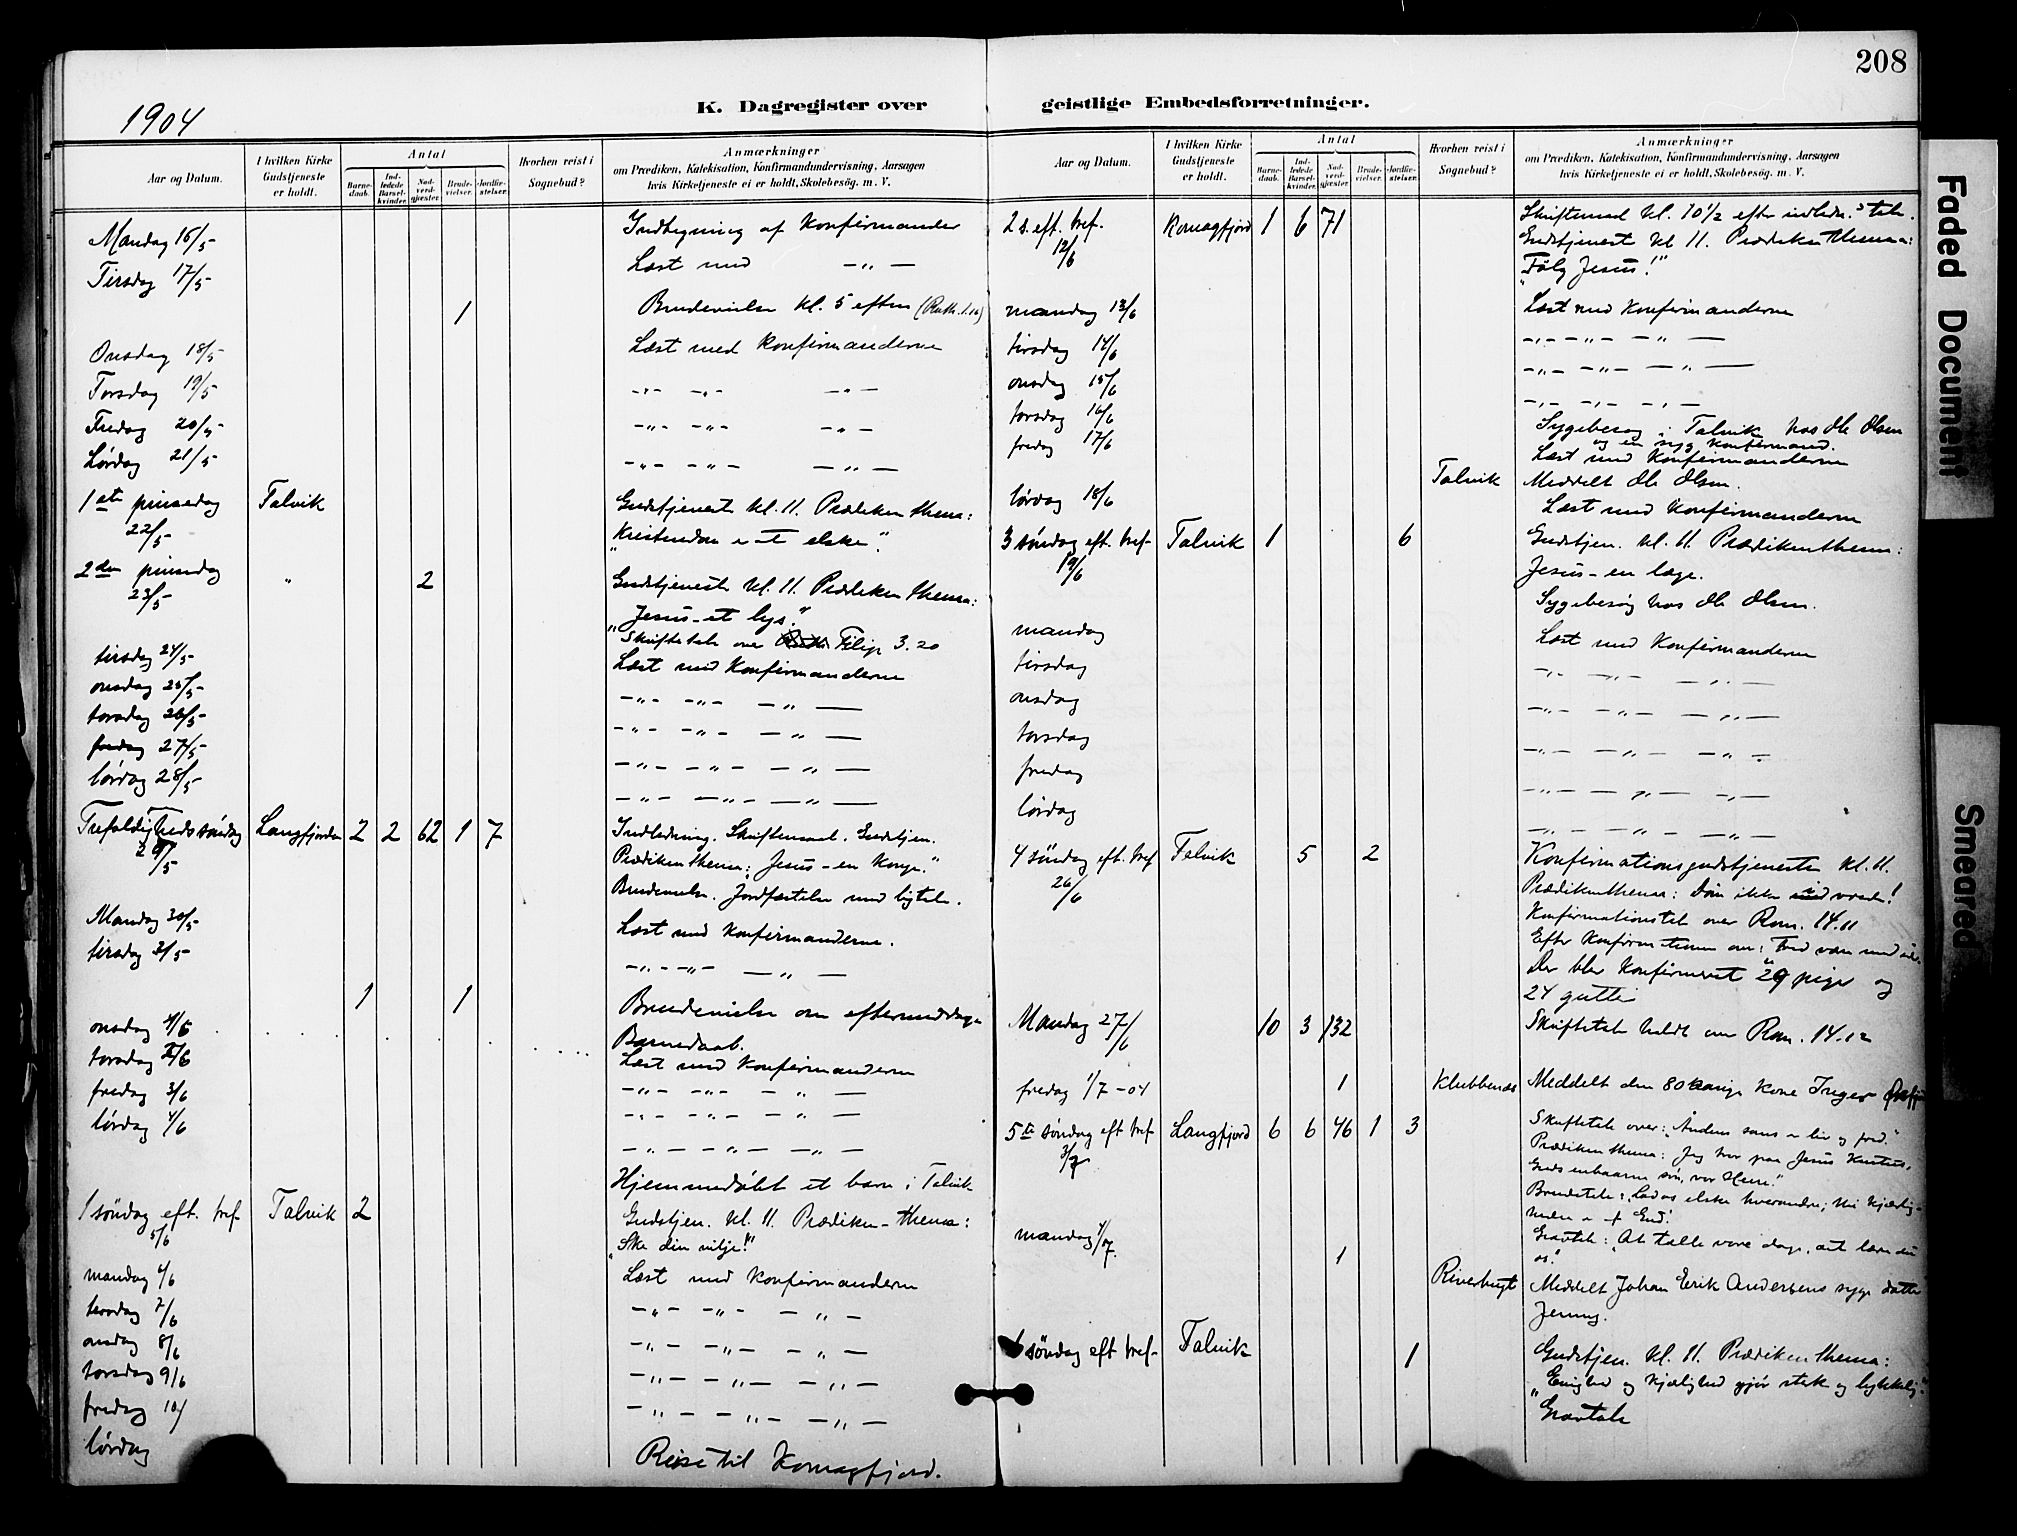 208
1904
K. Dagregister over
geistlige Embedsforretninger.
Aar og Datum.
I hvilken Kirke Gudstjeneste er holdt.
Antal
Barnedaab.
Indledede Barselkvinder.
Nadverdgjæster.
Brudevielser.
Jordfæstelser.
Hvorhen reist i Sognebud?
Anmærkninger
om Prædiken, Katekisation, Konfirmandundervisning, Aarsagen
hvis Kirketjeneste ei er holdt, Skolebesøg. m. V.
Mandag 16/5 Indtegning af Konfirmander
Tirsdag 17/5 Læst med -"-
1 Brudevielse kl. 5 efterm (Ruth. 1.16)
Onsdag 18/5 Læst med Konfirmanderne
Torsdag 19/5 -"- -"- -"-
Fredag 20/5 -"- -"- -"-
Lørdag 21/5 -"- -"- -"-
1ste pinsedag Talvik Gudstjeneste kl. 11. Prædiken thema:
22/5 "Kristendom er at elske".
2den pinsedag " 2 Gudstjeneste kl. 11. Prædiken thema:
23/5 "Jesus - et lys."
Skriftetale over Filip 3.20
tirsdag 24/5 Læst med Konfirmanderne
onsdag 25/5 -"- -"- -"-
torsdag 26/5 -"- -"- -"-
fredag 27/5 -"- -"- -"-
lørdag 28/5 -"- -"- -"-
Trefoldighedssøndag Langfjorden 2 2 62 1 7 Indledning. Skriftemaal. Gudstjen.
29/5 Prædiken thema: "Jesus - en Konge."
Brudevielse. Jordfæstelse med ligtale.
Mandag 30/5 Læst med Konfirmanderne.
tirsdag 31/5 -"- -"- -"-
1 1 Brudevielse om eftermiddagen
Barnedaab.
onsdag 1/6 Læst med Konfirmanderne
torsdag 2/6 -"- -"- -"-
fredag 3/6 -"- -"- -"-
lørdag 4/6 -"- -"- -"-
Hjemmedøbt et barn i Talvik
1 søndag eft. tref. Talvik 2 Gudstjen. kl. 11. Prædiken-thema:
5/6 "Ske din vilje!"
mandag 6/6 Læst med Konfirmanderne
tirsdag 7/6 -"- -"- -"-
onsdag 8/6 -"- -"- -"-
torsdag 9/6 -"- -"- -"-
fredag 10/ -"- -"- -"-
lørdag Reise til Komagfjord.
Aar og Datum.
I hvilken Kirke Gudstjeneste er holdt.
Antal
Barnedaab.
Indledede Barselkvinder.
Nadverdgjæster.
Brudevielser.
Jordfæstelser.
Hvorhen reist i Sognebud?
Anmærkninger
om Prædiken, Katekisation, Konfirmandundervisning, Aarsagen
hvis Kirketjeneste ei er holdt, Skolebesøg. m. V.
2 s. eft. tref. Komagfjord 1 6 71 Skriftemaal kl. 10 1/2 efter indledn.s tale.
12/6 Gudstjeneste kl 11. Prædiken thema:
"Følg Jesus!"
mandag 13/6 Læst med Konfirmanderne
tirsdag 14/6 -"- -"- -"-
onsdag 15/6 -"- -"- -"-
torsdag 16/6 -"- -"- -"-
fredag 17/6 Sygebesøg i Talvik hos Ole Olsen
og en syg konfirmand.
Læst med Konfirmanderne
lørdag 18/6 Talvik Meddelt Ole Olsen.
Læst med Konfirmanderne
3 søndag eft. tref. Talvik 1 6 Gudstjen. kl. 11. Prædikenthema:
19/6 Jesus - en læge.
Sygebesøg hos Ole Olsen.
mandag Læst med Konfirmanderne
tirsdag -"- -"- -"-
onsdag -"- -"- -"-
torsdag -"- -"- -"-
fredag -"- -"- -"-
lørdag -"- -"- -"-
4 søndag eft. tref Talvik 5 2 Konfirmationsgudstjeneste kl. 11.
26/6 Prædikenthema: Døm ikke
Konfirmationstale over Rom. 14.11
Efter Konfirmationen om: Fred være med
Der blev Konfirmeret 29 piger og
24 gutter
Mandag 27/6 10 3 132 Skriftetale holdt over Rom. 14.12
fredag 1/7 - 04 1 Klubbenæs Meddelt den 80 aarige Kone Inger
5te søndag eft tref Langfjord 6 6 46 1 3 Skriftetale over: "Aandens sans er liv og fred."
3/7 Prædiken thema: Jeg tror paa Jesus Kristus,
Guds enbaarne søn, vor Herre."
Brudetale: "Lad os elske hverandre; thi Kjærlig-
heden er af Gud."
Gravtale: "At tælle vore dage, det lære du
os."
mandag 4/7. 1 Riverbugt Meddelt Johan Erik Andersens syge datter
Jenny.
6 søndag eft tref. Talvik 1 Gudstjen. kl. 11. Prædiken thema:
"Enighed og Kjærlighed gjør stærk og lykkelig."
Gravtale
Faded Document
Smeared